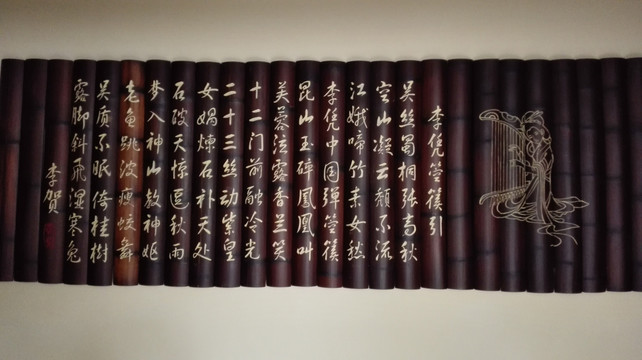 李凭箜篌引
吴丝蜀桐张高秋
空山凝云颓不流
江娥啼竹素女愁
李凭中国彈箜篌
昆山玉碎鳳凰叫
芙蓉泣露香兰笑
十二门前融冷光
二十三丝动紫皇
女娲煉石补天处
石破天惊逗秋雨
梦入神山教神妪
老鱼跳波瘦蛟舞
吴质不眠倚桂樹
露脚斜飛濕寒兔
李贺